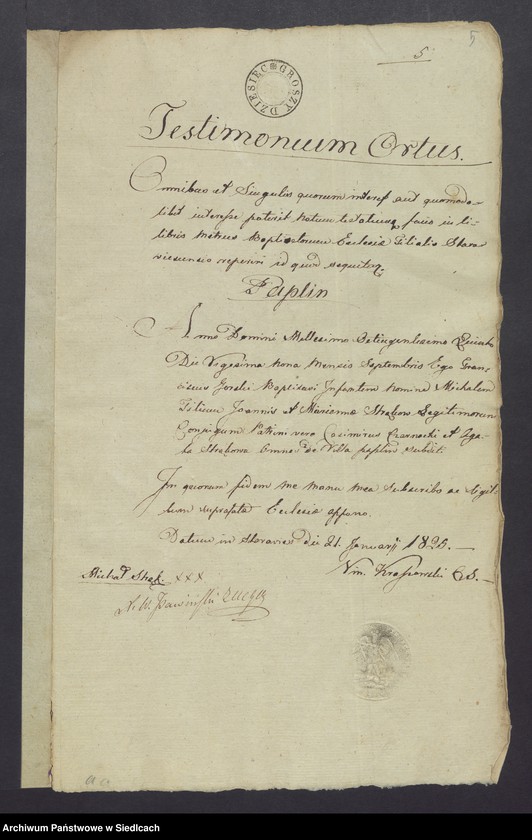 5
5
DZIESIĘC GROSZY
Testimonium Ortus.
Omnibus et Singulis quorum interest aut quomodo-
libet interesse poterit notum testatumq facio in li-
libris Metrices Baptisatorum Ecclesiæ Filialis Stara
viesiensis reperiri id quod sequitur.
Paplin
Anno Domini Millesimo Octingentesimo Quinto
Die Vigesima Nona Mensis Septembris Ego Fran-
ciscus Baptisavi Infantem nomine Michalem
Filium Joannis et Marianna Legitimorum
Conjugum Patrini vero Casimirus Czarnecki et Aga-
ta omnes de Villa paplin
In quorum fidem me manu mea subscribo ac Sigil-
lum suprafata Ecclesiæ appono.
Datum in die 21. Januarii 1825.
Michał XXX
Archiwum Państwowe w Siedlcach